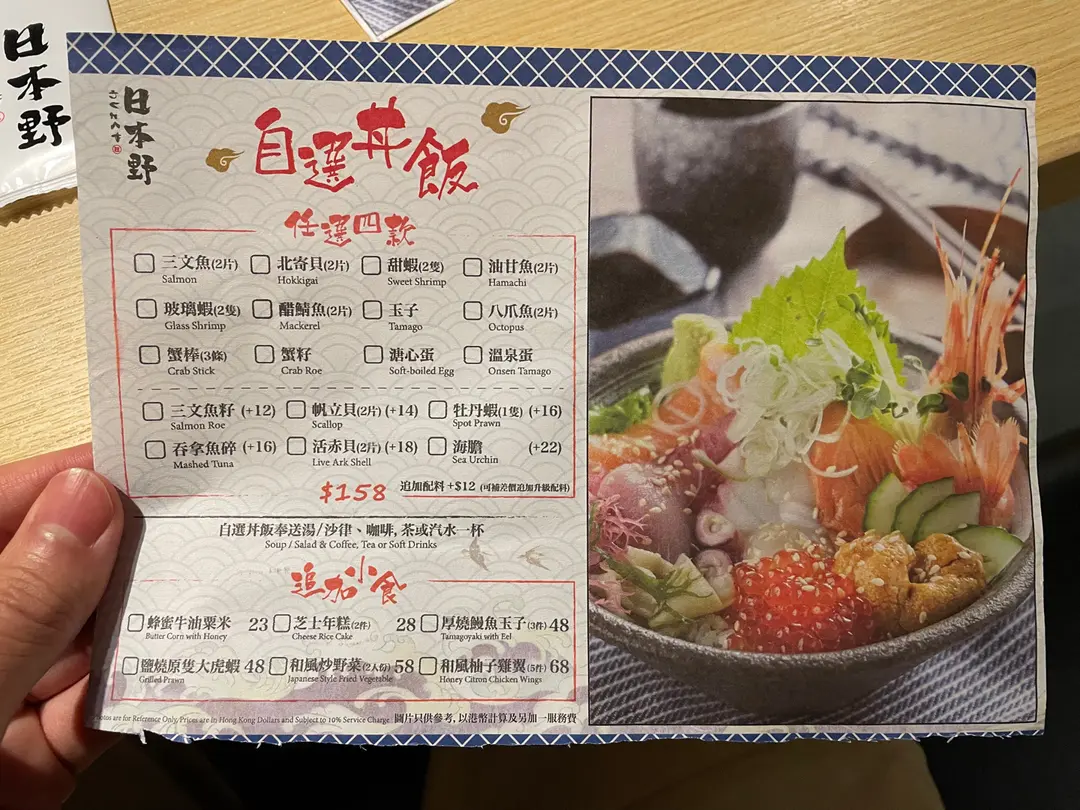 日本野
日本野
自選丼飯
任選四款
三文魚(2片) 北寄貝(2片) 甜蝦(2隻) 油甘魚(2片)
Salmon Hokkigai Sweet Shrimp Hamachi
玻璃蝦(2隻) 醋鯖魚(2片) 玉子 八爪魚(2片)
Glass Shrimp Mackerel Tamago Octopus
蟹棒(3條) 蟹籽 溏心蛋 溫泉蛋
Crab Stick Crab Roe Soft-boiled Egg Onsen Tamago
三文魚籽 (+12) 帆立貝(2片) (+14) 牡丹蝦(1隻) (+16)
Salmon Roe Scallop Spot Prawn
吞拿魚碎 (+16) 活赤貝(2片) (+18) 海膽 (+22)
Mashed Tuna Live Ark Shell Sea Urchin
$158 追加配料 +$12 (可補差價追加升級配料)
自選丼飯奉送湯/沙律、咖啡, 茶或汽水一杯
Soup / Salad & Coffee, Tea or Soft Drinks
追加小食
蜂蜜牛油粟米 23 芝士年糕(2件) 28 厚燒鰻魚玉子(3件) 48
Butter Corn with Honey Cheese Rice Cake Tamagoyaki with Eel
鹽燒原隻大虎蝦 48 和風炒野菜(2人份) 58 和風柚子雞翼(5件) 68
Grilled Prawn Japanese Style Fried Vegetable Honey Citron Chicken Wings
are for Reference Only, Prices are in Hong Kong Dollars and Subject to 10% Service Charge 圖片只供參考, 以港幣計算及另加一服務費